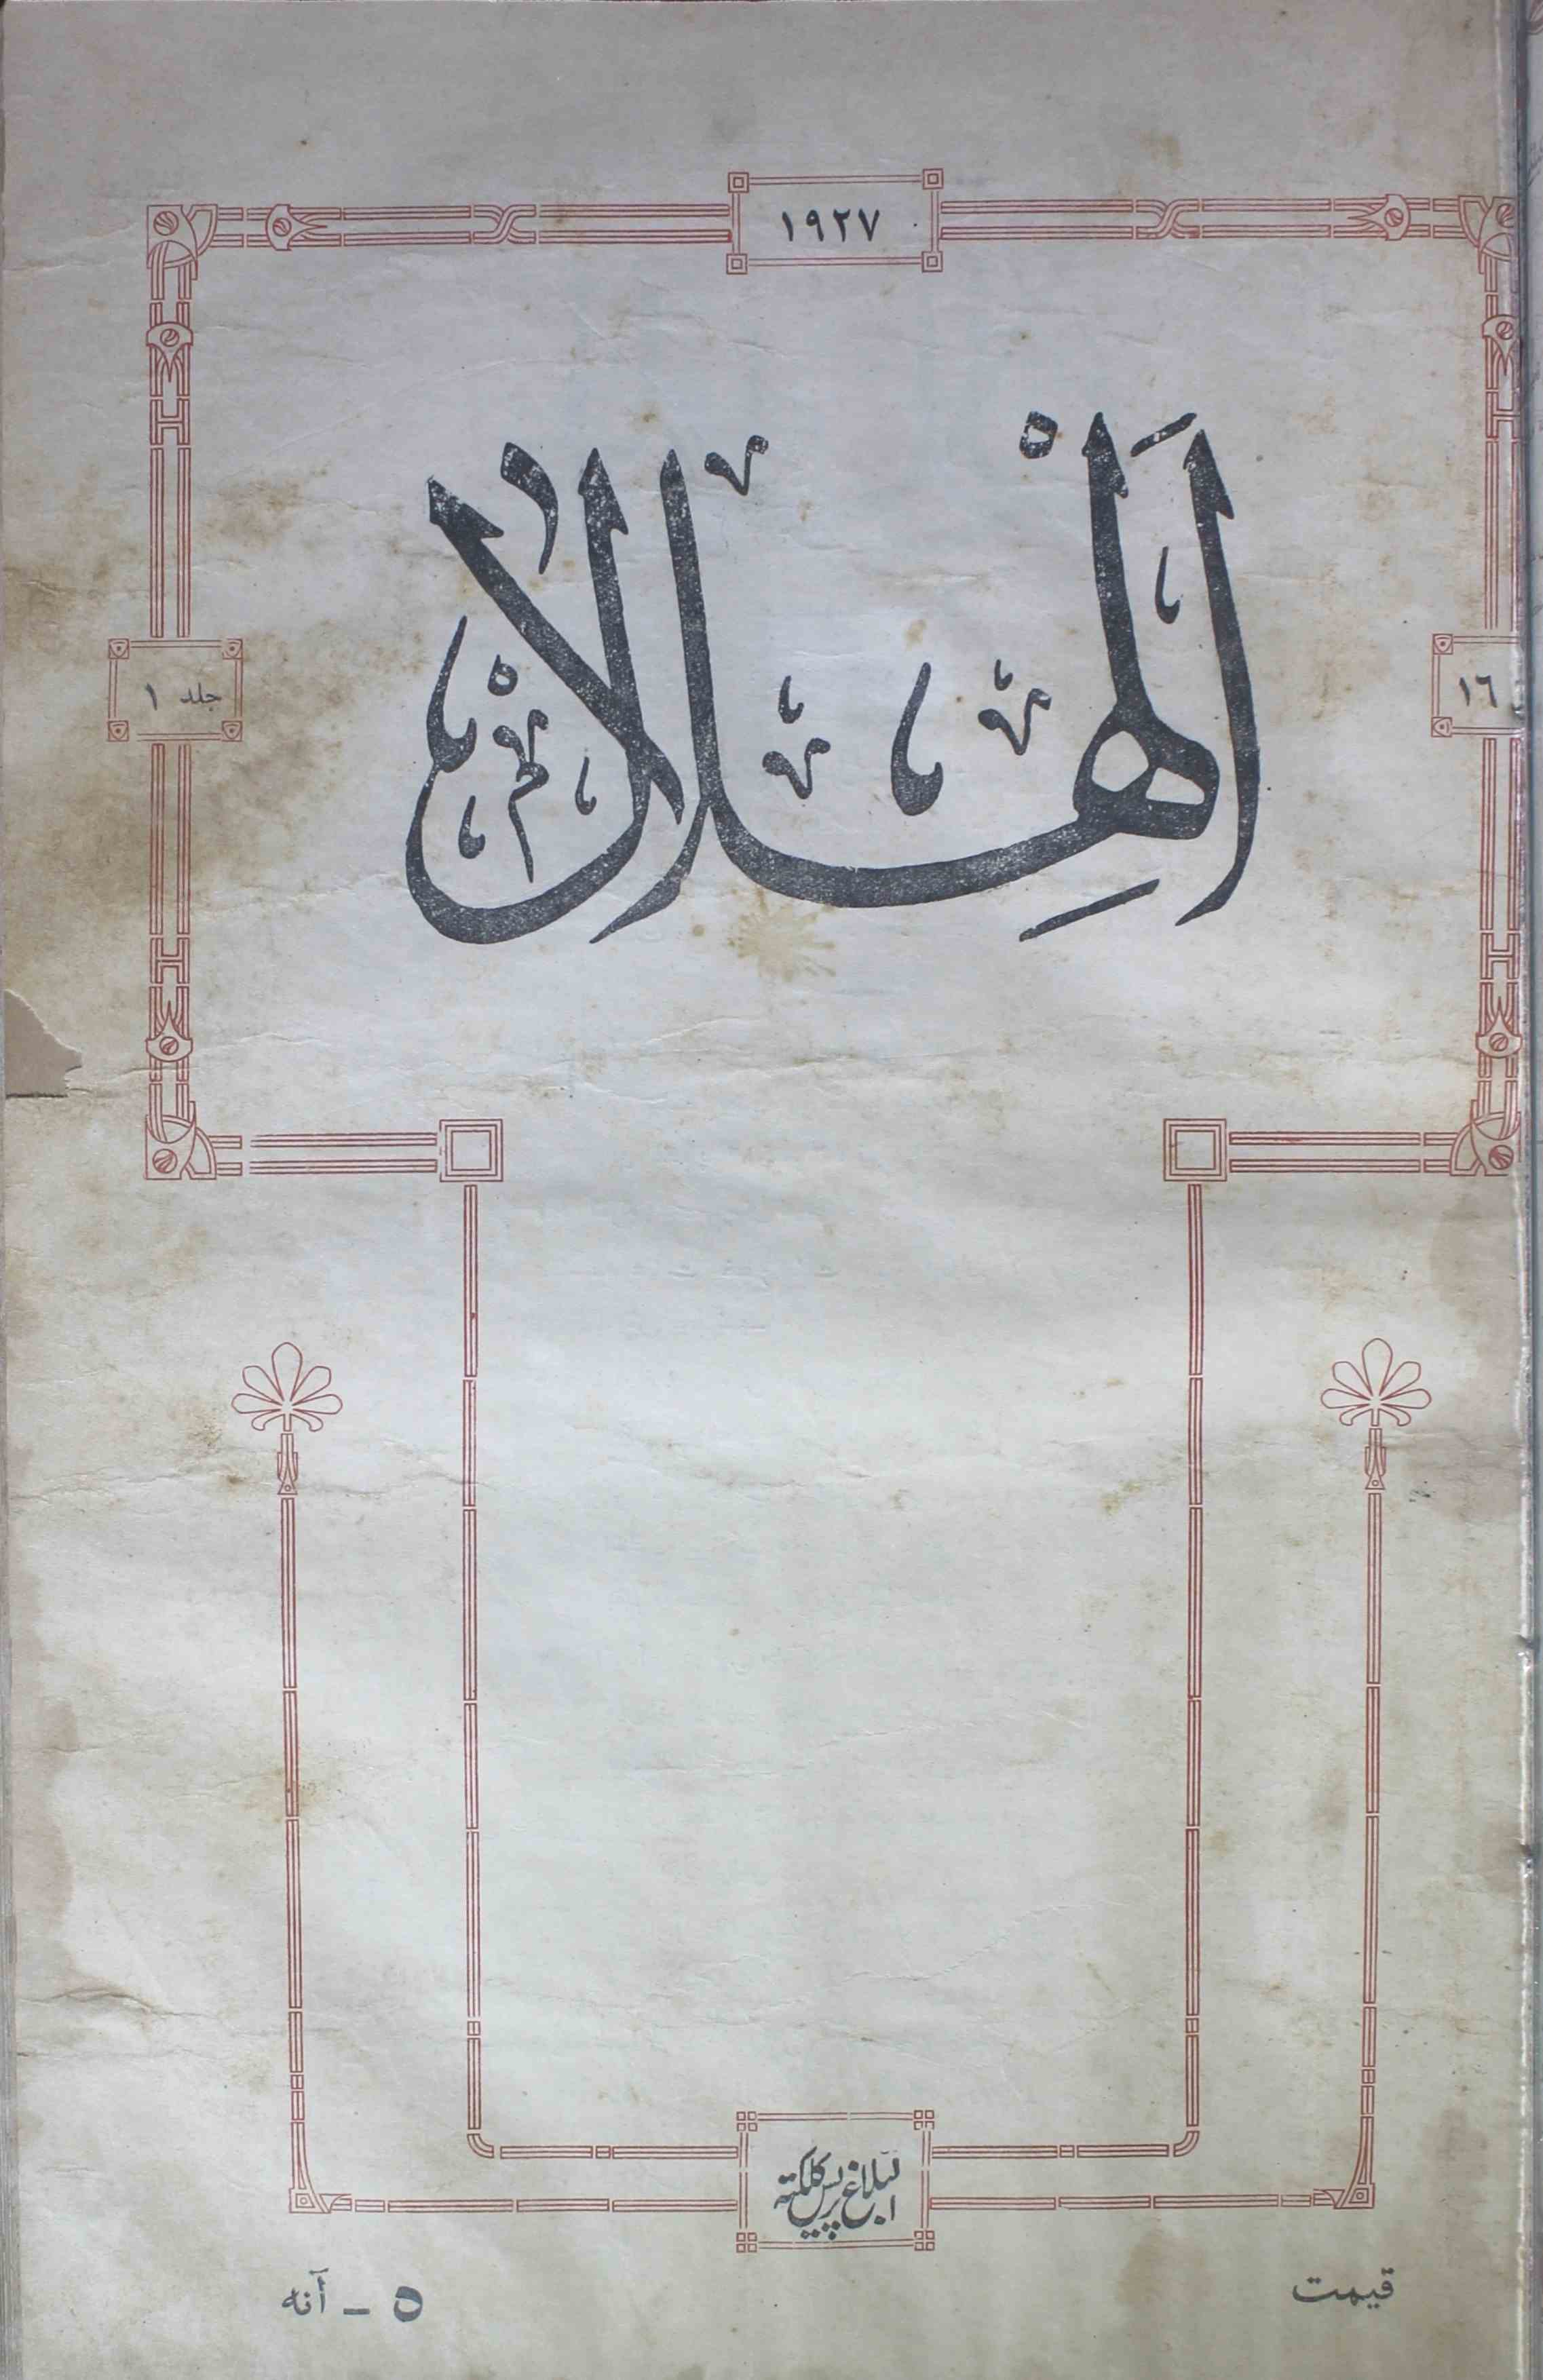 ١٩٢٧
الهلال
١٦
جلد ١
البلاغ پریس کلکته
قیمت
٥ ـ آنه